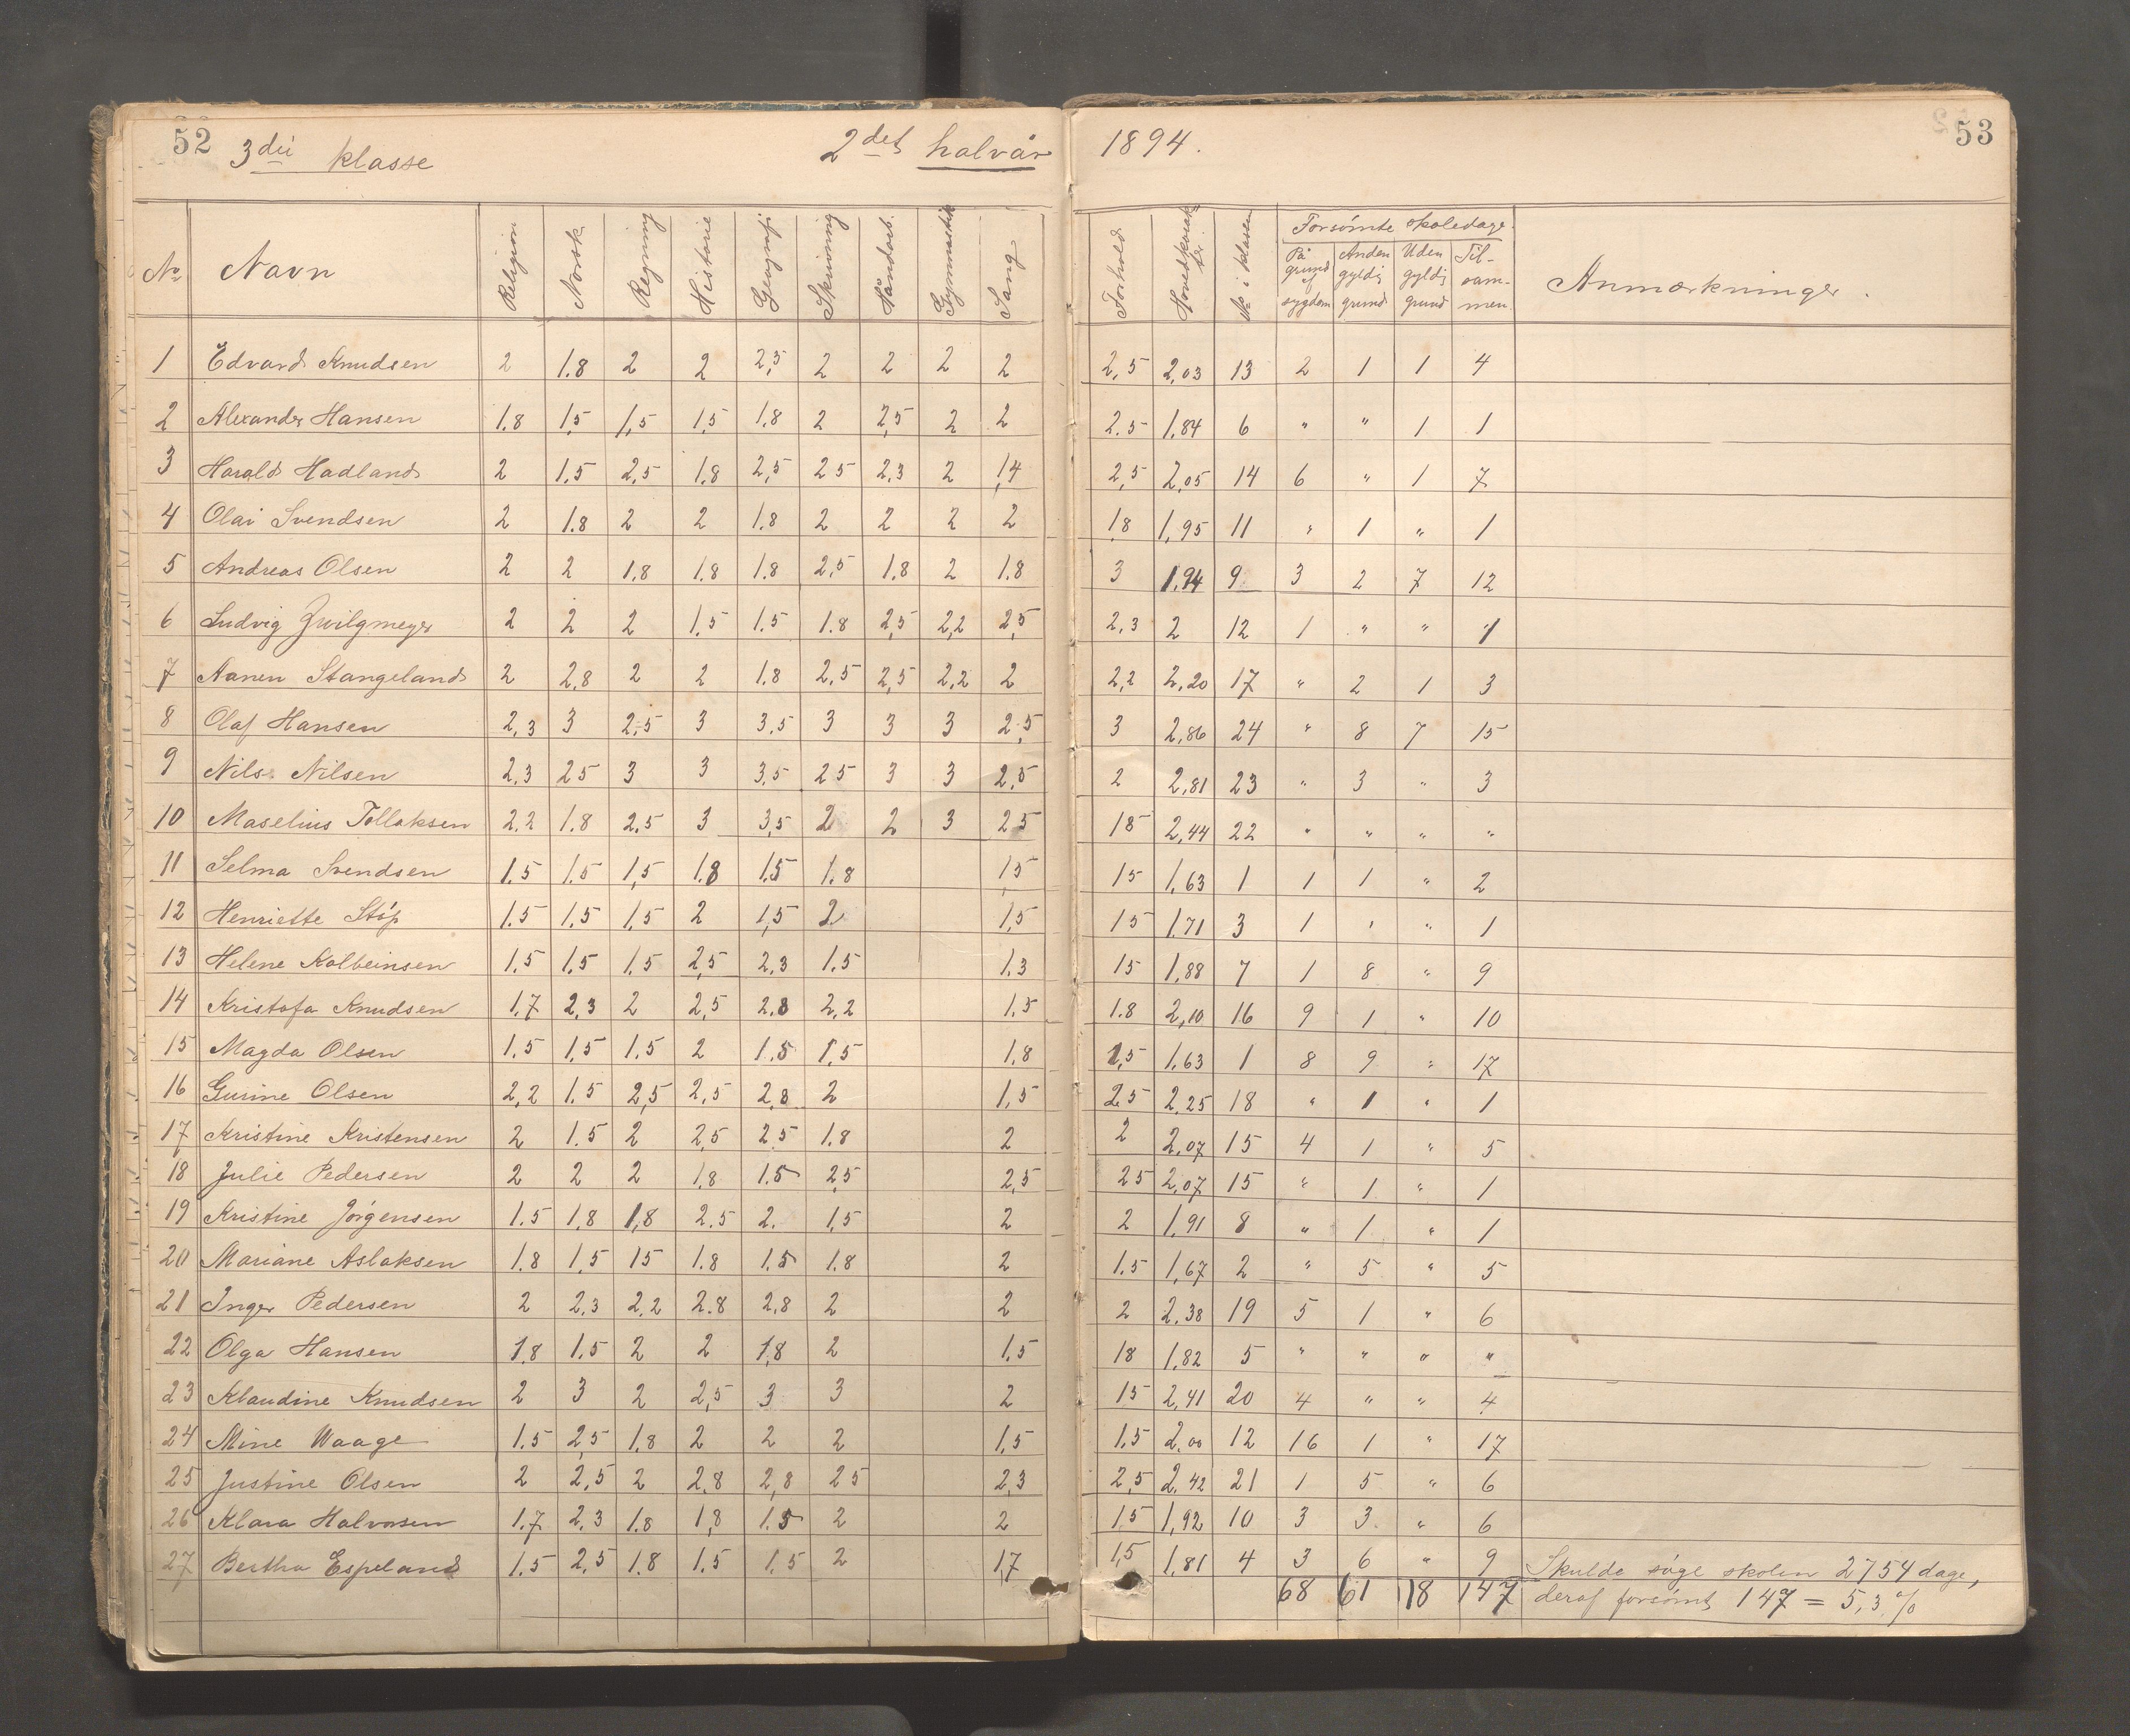 52 3die klasse 2det halvår 1894. 53
No Navn Religion Norsk Regning Historie Geografi Skrivning Håndarb. Gymnastik Sang Forhold Hovedkarakter. No i klassen Forsømte skoledage. På grund af sygdom Anden gyldig grund Uden gyldig grund Til-sam-men. Anmærkninger.
1 Edvard Knudsen 2 1.8 2 2 2,5 2 2 2 2 2,5 2,03 13 2 1 1 4
2 Alexander Hansen 1.8 1,5 1,5 1,5 1.8 2 2,5 2 2 2.5 1,84 6 " " 1 1
3 Harald Hadland 2 1.5 2,5 1.8 2,5 25 2,3 2 1,4 2,5 2,05 14 6 " 1 7
4 Olai Svendsen 2 1.8 2 2 1.8 2 2 2 2 1,8 1,95 11 " 1 " 1
5 Andreas Olsen 2 2 1.8 1.8 1.8 2,5 1.8 2 1.8 3 1,94 9 3 2 7 12
6 Ludvig Zwilgmeyer 2 2 2 1,5 1.5 1.8 2,5 2,2 2,5 2,3 2 12 1 " " 1
7 Aanen Stangeland 2 2,8 2 2 1.8 2,5 2,5 2,2 2 2,2 2,20 17 " 2 1 3
8 Olaf Hansen 2,3 3 2,5 3 3,5 3 3 3 2,5 3 2,86 24 " 8 7 15
9 Nils Nilsen 2,3 25 3 3 3,5 25 3 3 2,5 2 2,81 23 " 3 " 3
10 Maselius Tollaksen 2,2 1.8 2,5 3 3,5 2 2 3 25 18 2,44 22 " " " "
11 Selma Svendsen 1.5 1.5 1,5 1.8 1.5 1.8 1,5 15 1,63 1 1 1 " 2
12 Henriette Støp 1.5 1,5 1,5 2 1,5 2 1,5 15 1,71 3 1 " " 1
13 Helene Kolbeinsen 1.5 1,5 1,5 2,5 2,3 1.5 1.3 15 1,88 7 1 8 " 9
14 Kristofa Knudsen 1,7 2,3 2 2,5 2.8 2,2 1.5 1.8 2,10 16 9 1 " 10
15 Magda Olsen 1.5 1,5 1.5 2 1.5 1,5 1,8 1,5 1,63 1 8 9 " 17
16 Gurine Olsen 2,2 1.5 2,5 2,5 2,8 2 1,5 2.5 2,25 18 " 1 " 1
17 Kristine Kristensen 2 1.5 2 2,5 2,5 1.8 2 2 2,07 15 4 1 " 5
18 Julie Pedersen 2 2 2 1,8 1.5 2,5 2,5 25 2,07 15 " 1 " 1
19 Kristine Jørgensen 1.5 1,8 1,8 2.5 2. 1,5 2 2 1,91 8 " 1 " 1
20 Mariane Aslaksen 1.8 1,5 15 1.8 1.5 1.8 2 1.5 1,67 2 " 5 " 5
21 Inger Pedersen 2 2,3 2,2 2.8 2,8 2 2 2 2,38 19 5 1 " 6
22 Olga Hansen 1,8 1.5 2 2 1,8 2 1,5 18 1,82 5 " " " "
23 Klaudine Knudsen 2 3 2 2,5 3 3 2 15 2,41 20 4 " " 4
24 Mine Waage 1.5 2,5 1.8 2 2 2 1,5 1.5 2,00 12 16 1 " 17
25 Justine Olsen 2 2,5 2 2.8 2,8 25 2,3 2,5 2,42 21 1 5 " 6
26 Klara Halvorsen 1.7 2,3 1.8 1,8 1.5 2 2 1,5 1,92 10 3 3 " 6
27 Bertha Espeland 1.5 2,5 1.8 1,5 1.5 2 1,7 1,5 1,81 4 3 6 " 9 Skulde søge skolen 2754 dage,
68 61 18 147 deraf forsømt 147 = 5,3 %